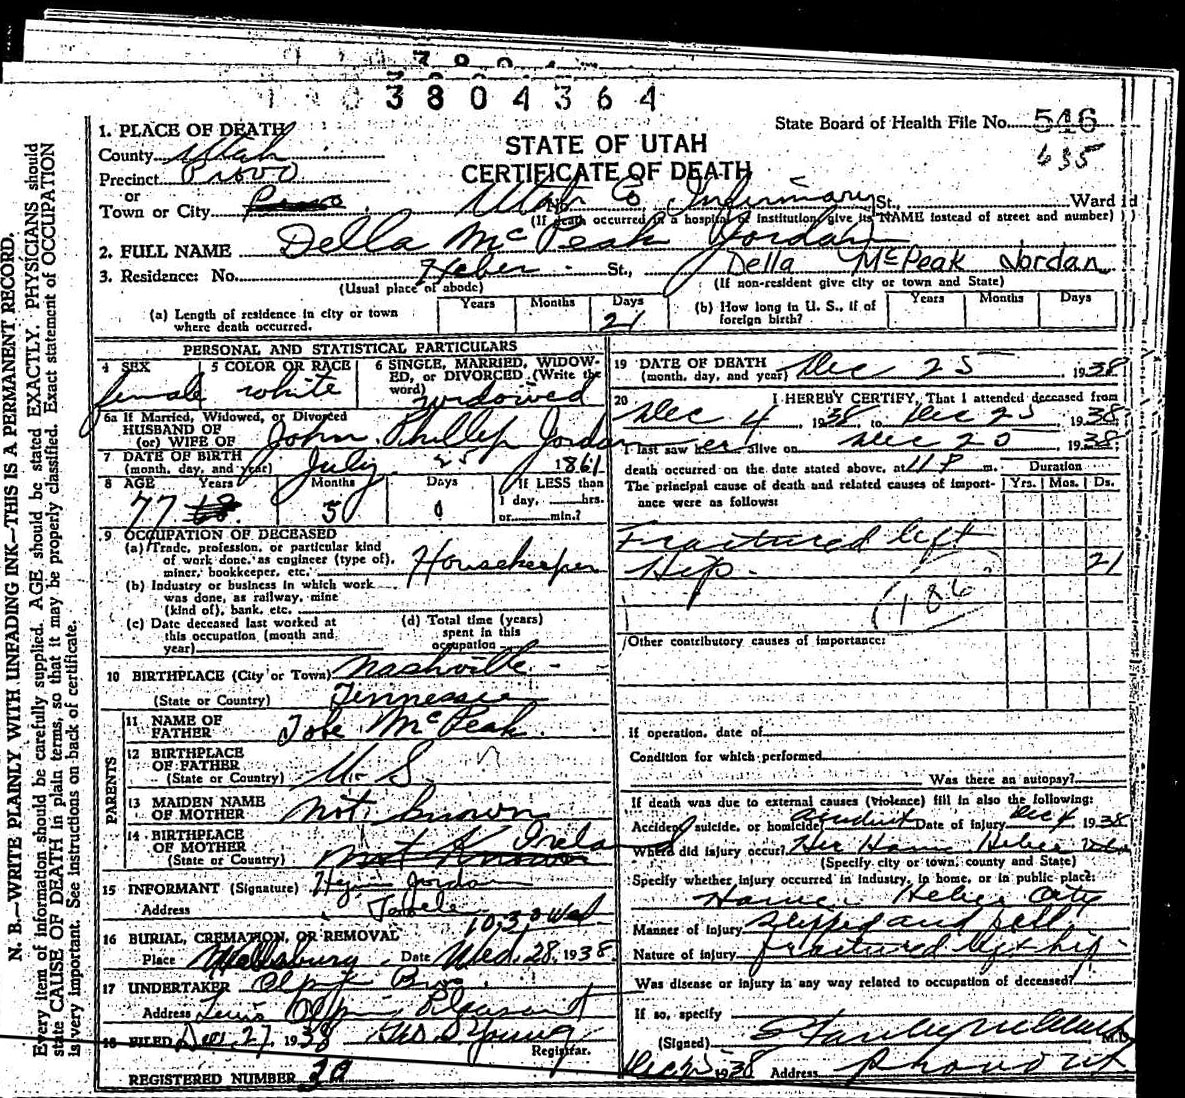 3804364
State Board of Health File No. 546
635
STATE OF UTAH
CERTIFICATE OF DEATH
1. PLACE OF DEATH
County Utah
Precinct Provo
or
Town or City Provo No. Utah Co Infirmary St., Ward
(If death occurred in a hospital or institution give its NAME instead of street and number)
2. FULL NAME Della McPeak Jordan
3. Residence: No. Heber St., Della McPeak Jordan
(Usual place of abode) (If non-resident give city or town and State)
(a) Length of residence in city or town where death occurred. Years Months Days 21
(b) How long in U. S., if of foreign birth? Years Months Days
PERSONAL AND STATISTICAL PARTICULARS
4 SEX female
5 COLOR OR RACE white
6 SINGLE, MARRIED, WIDOWED, or DIVORCED (Write the word) widowed
6a If Married, Widowed, or Divorced
HUSBAND OF
(or) WIFE OF John Phillip Jordan
7 DATE OF BIRTH
(month, day, and year) July 25 1861
8 AGE Years Months Days If LESS than
77 5 0 1 day, hrs.
or min.?
9 OCCUPATION OF DECEASED
(a) Trade, profession, or particular kind
of work done, as engineer (type of),
miner, bookkeeper, etc. Housekeeper
(b) Industry or business in which work
was done, as railway, mine
(kind of), bank, etc.
(c) Date deceased last worked at
this occupation (month and
year)
(d) Total time (years)
spent in this
occupation
10 BIRTHPLACE (City or Town) Nashville
(State or Country) Tennessee
PARENTS
11 NAME OF
FATHER Tobe McPeak
12 BIRTHPLACE
OF FATHER
(State or Country) U. S.
13 MAIDEN NAME
OF MOTHER Not known
14 BIRTHPLACE
OF MOTHER Ireland
(State or Country) Not Known
15 INFORMANT (Signature) Hyrum Jordan
Address Tooele
10:30 Wed
16 BURIAL, CREMATION, OR REMOVAL
Place Wallsburg Date Wed. 28, 1938
17 UNDERTAKER Olpin Bros.
Address Pleasant
18 FILED Dec. 27, 1938 Young
Registrar.
REGISTERED NUMBER
19 DATE OF DEATH
(month, day, and year) Dec 25 1938
20 I HEREBY CERTIFY, That I attended deceased from
Dec 4, 1938, to Dec 25, 1938
I last saw her alive on Dec 20 1938
death occurred on the date stated above, at 11 P m.
Duration
The principal cause of death and related causes of importance were as follows: Yrs. Mos. Ds.
Fractured left
Hip. 21
(186)
Other contributory causes of importance:
If operation, date of
Condition for which performed
Was there an autopsy?
If death was due to external causes (violence) fill in also the following:
Accident, suicide, or homicide accident Date of injury Dec 4 1938
Where did injury occur? Her Home Heber Utah
(Specify city or town, county and State)
Specify whether injury occurred in industry, in home, or in public place:
Home Heber City
Manner of injury slipped and fell
Nature of injury fractured left hip
Was disease or injury in any way related to occupation of deceased?
If so, specify
(Signed) Stanley M.D.
Dec 1938 Address Provo Ut
N. B.—WRITE PLAINLY WITH UNFADING INK—THIS IS A PERMANENT RECORD.
Every item of information should be carefully supplied. AGE should be stated EXACTLY. PHYSICIANS should
state CAUSE OF DEATH in plain terms, so that it may be properly classified. Exact statement of OCCUPATION
is very important. See instructions on back of certificate.